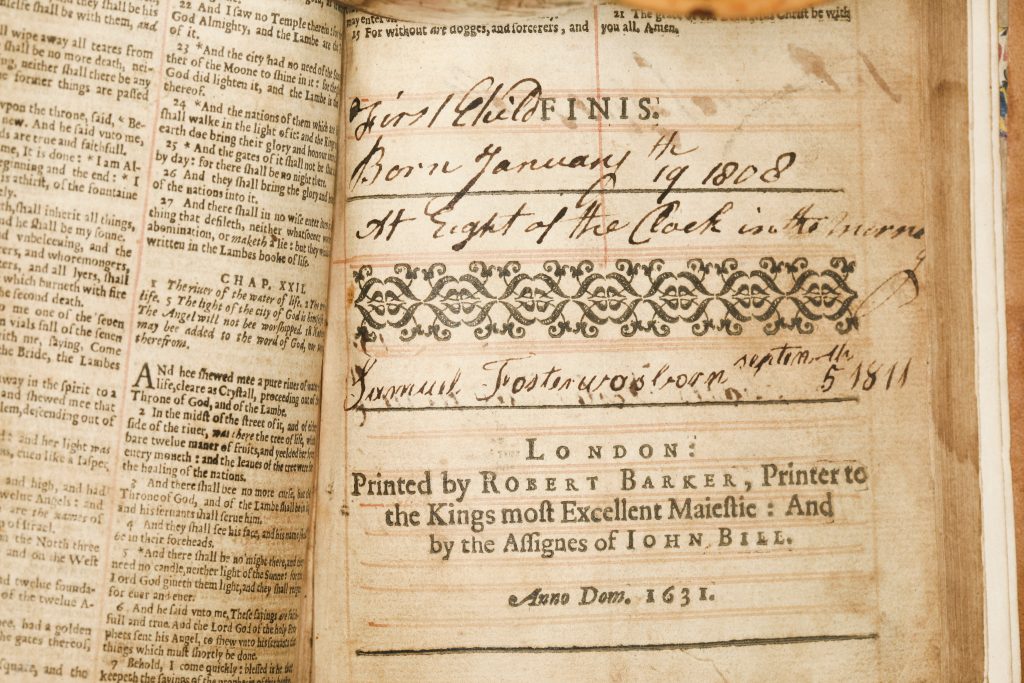 h his people,
ll wipe away all teares from
shall be no more death, nei-
ng, neither shall there be any
e former things are passed
vpon the throne, said, * Be-
new. And he said vnto me,
ds are true and faithfull.
me, It is done: * I am Al-
eginning and the end: * I
is athirst, of the fountaine
ly.
th, shall inherit all things,
nd he shall be my sonne.
and vnbeleeuing, and the
ers, and whoremongers,
ers, and all lyers, shall
which burneth with fire
he second death.
me one of the seuen
n vials full of the seuen
ith me, saying, Come
he Bride, the Lambes
way in the spirit to a
and shewed mee that
lem, descending out of
: and her light was
s, euen like a Iasper,
and high, and had
twelue Angels: and
are the names of
of Israel.
n the North three
and on the West
ad twelue founda-
of the twelue A-
ee, had a golden
he gates thereof,
square, and the
22 And I saw no Temple therein: for
God Almighty, and the Lambe are the
of it.
23 *And the city had no need of the
ther of the Moone to shine in it: for the
God did lighten it, and the Lambe is the
thereof.
24 *And the nations of them which are
shall walke in the light of it: and the Kings
earth doe bring their glory and honour into
25 *And the gates of it shall not be shut
by day: for there shall be no night there.
26 And they shall bring the glory and
of the nations into it.
27 And there shall in no wise enter into it
thing that defileth, neither whatsoeuer
abomination, or maketh a lie: but they
written in the Lambes booke of life.
CHAP. XXII.
1 The riuer of the water of life. 2 The tree of
life. 5 The light of the city of God is himselfe
The Angel will not bee worshipped. 18 Nothing
may bee added to the word of God, nor taken
therefrom.
And hee shewed mee a pure riuer of water
life, cleare as Crystall, proceeding out of
Throne of God, and of the Lambe.
2 In the midst of the street of it, and of either
side of the riuer, was there the tree of life, which
bare twelue maner of fruits, and yeelded her fruit
euery moneth: and the leaues of the tree were for
the healing of the nations.
3 And there shall bee no more curse, but the
Throne of God, and of the Lambe shall be in it,
and his seruants shall serue him.
4 And they shall see his face, and his name shall
be in their foreheads.
5 *And there shall be no night there, and they
need no candle, neither light of the Sunne: for the
Lord God giueth them light, and they shall reigne
for euer and euer.
6 And he said vnto me, These sayings are faith-
full and true. And the Lord God of the holy Pro-
phets sent his Angel, to shew vnto his seruants the
things which must shortly be done.
7 Behold, I come quickly: blessed is he that
keepeth the sayings of the prophecie of this booke.
may enter
15 For without are dogges, and sorcerers, and
21 The Christ be with
you all. Amen.
First Child FINIS.
Born January th 19 1808
At Eight of the Clock in the morning
Samuel Foster was born septem th 5 1811
LONDON:
Printed by ROBERT BARKER, Printer to
the Kings most Excellent Maiestie: And
by the Assignes of IOHN BILL.
Anno Dom. 1631.